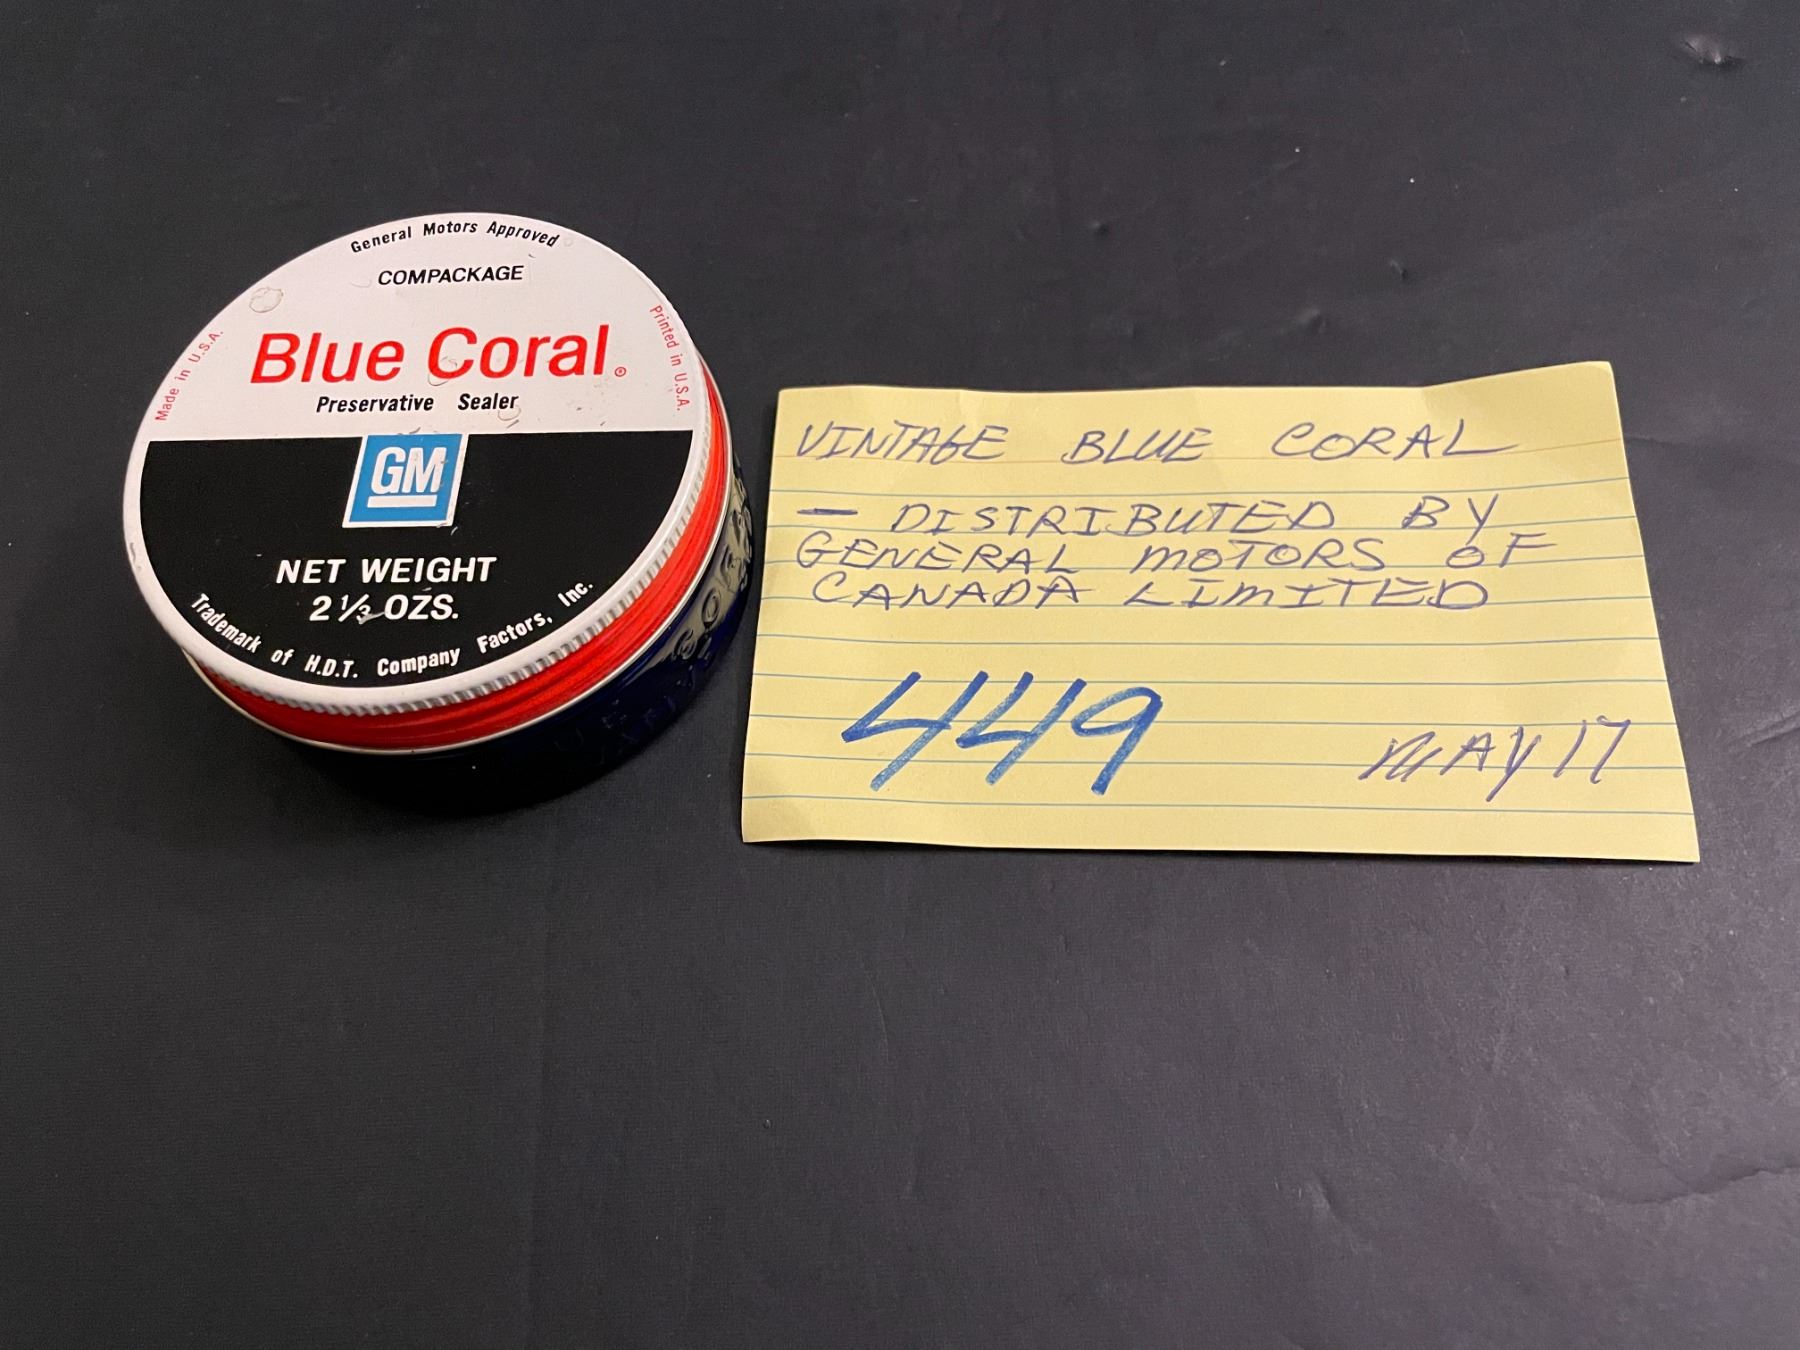 General Motors Approved
COMPACKAGE
Made in U.S.A.
Printed in U.S.A.
Blue Coral®
Preservative Sealer
GM
NET WEIGHT
2 1/3 OZS.
Trademark of H.D.T. Company Factors, Inc.
VINTAGE BLUE CORAL
— DISTRIBUTED BY
GENERAL MOTORS OF
CANADA LIMITED
449
MAY 17